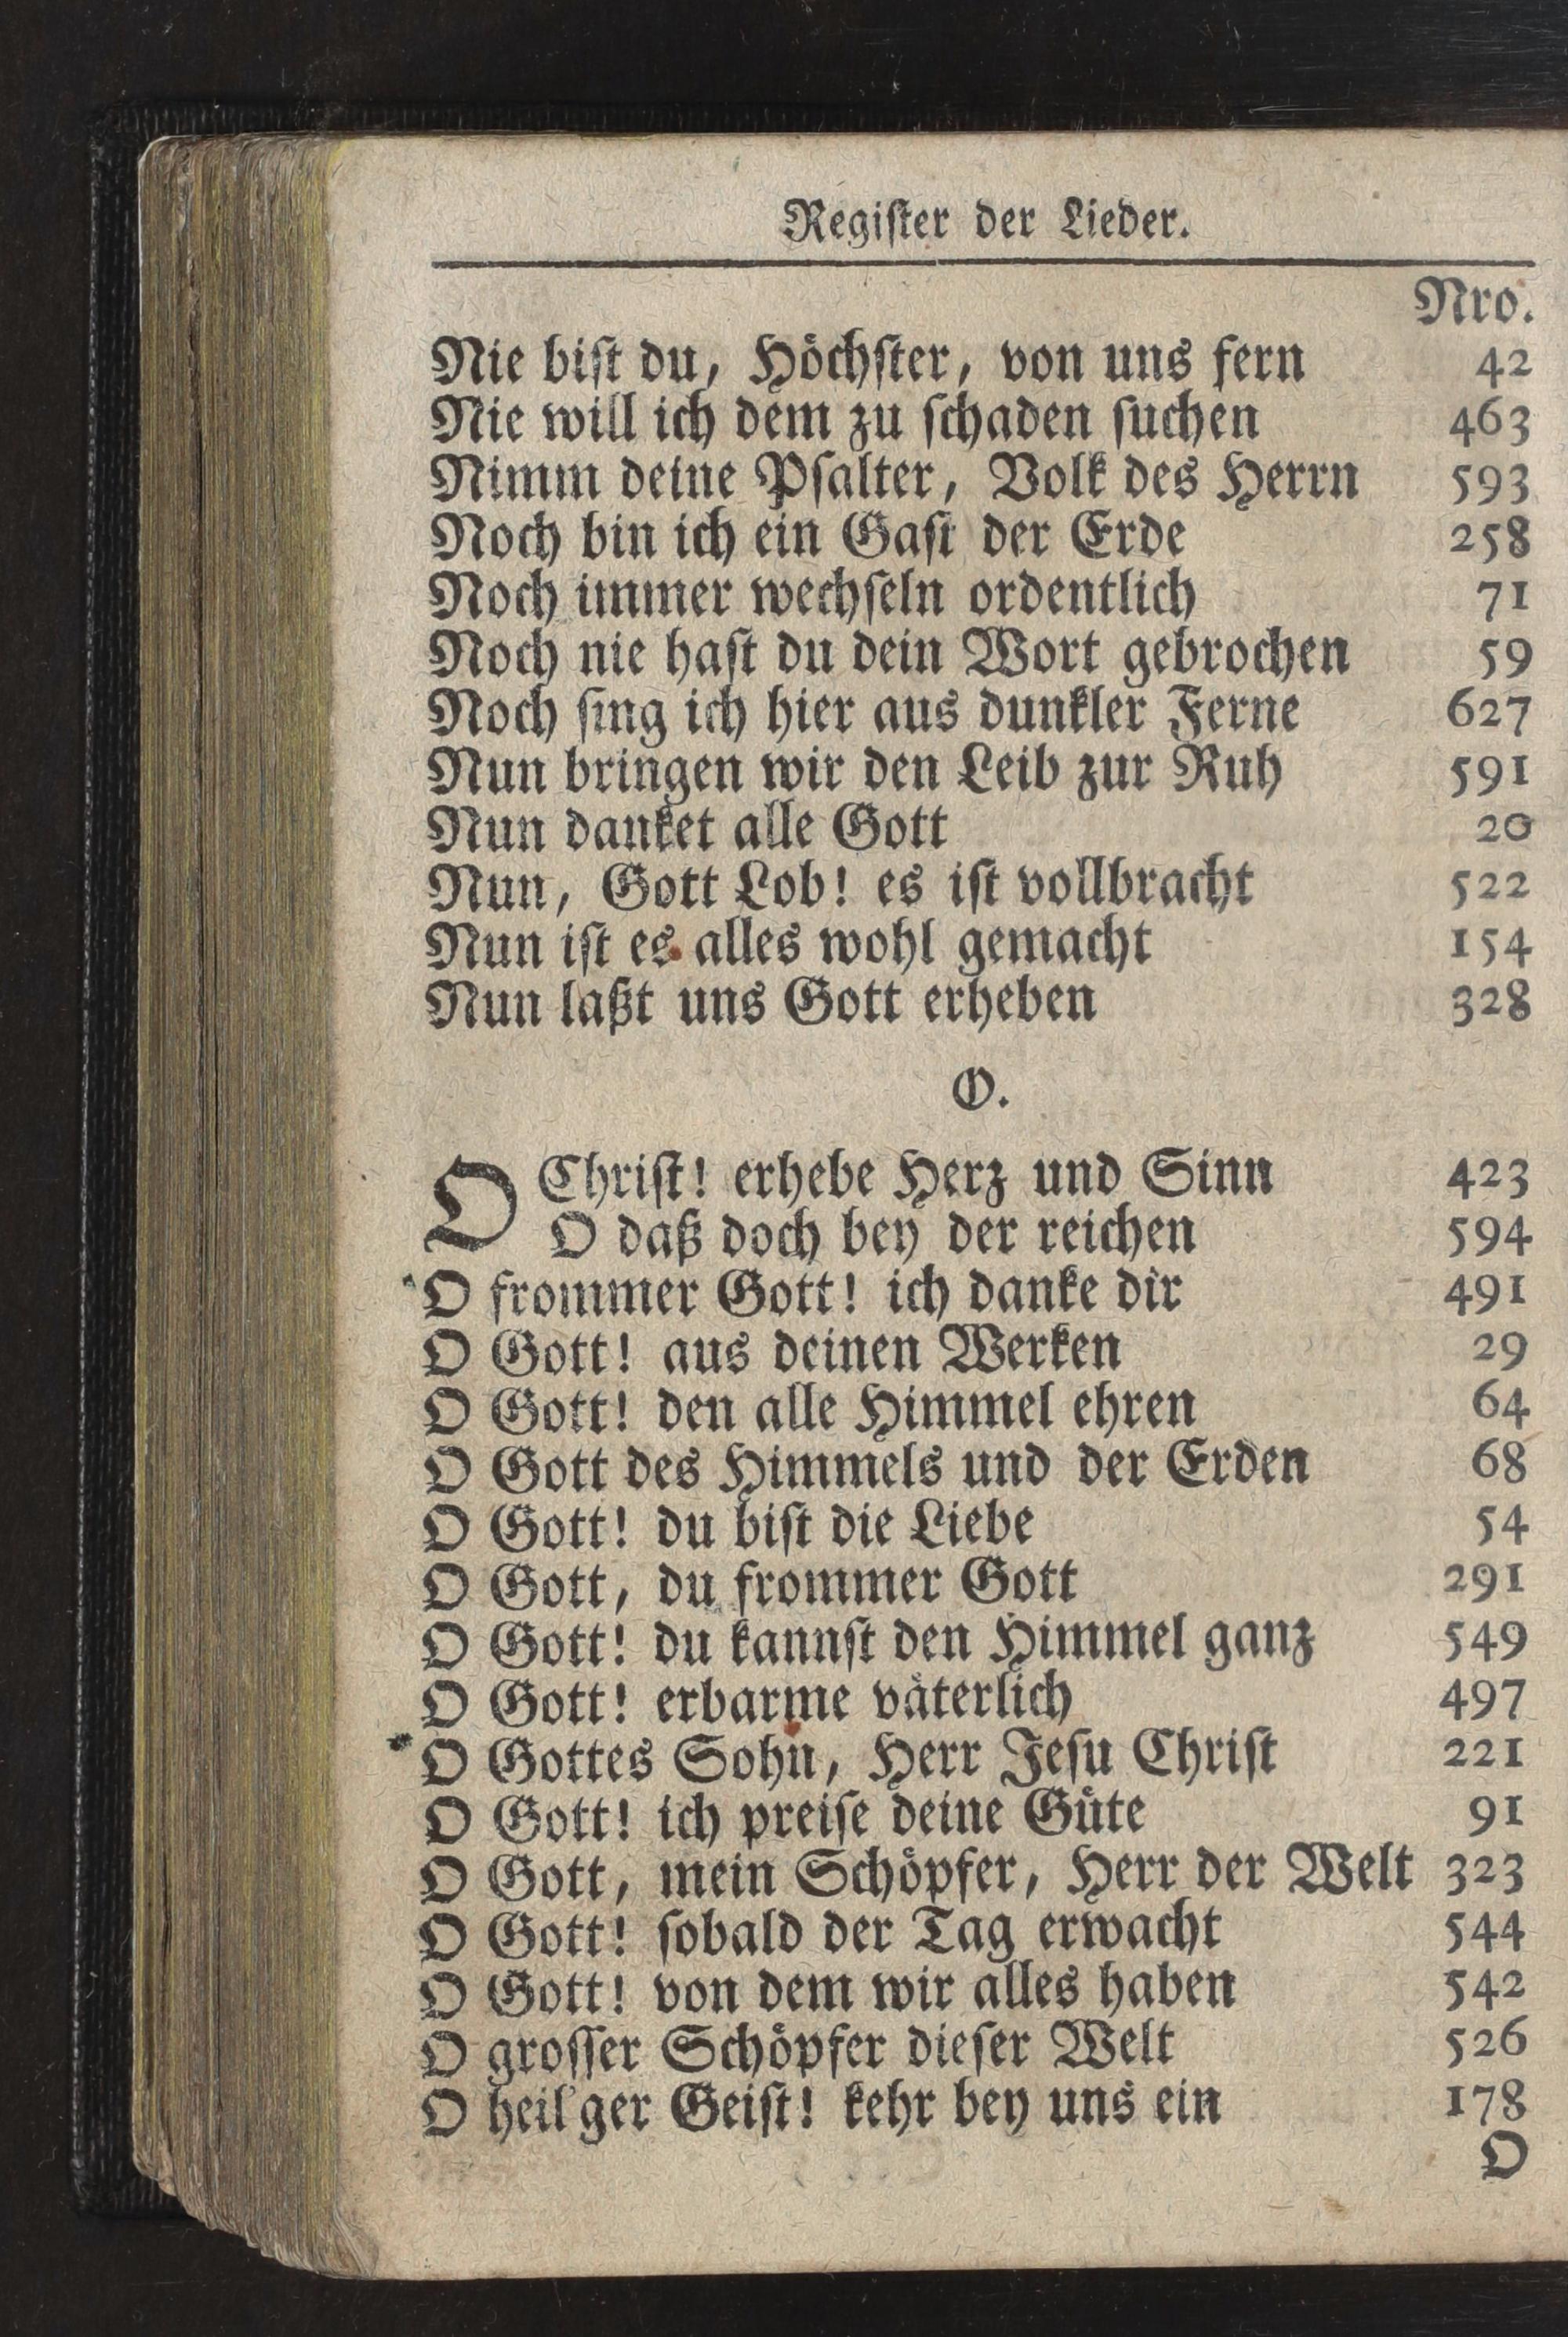 Regiſter der Lieder.
Nro.
Nie biſt du, Höchſter, von uns fern 42
Nie will ich dem zu ſchaden ſuchen 463
Nimm deine Pſalter, Volk des Herrn 593
Noch bin ich ein Gaſt der Erde 258
Noch immer wechſeln ordentlich 71
Noch nie haſt du dein Wort gebrochen 59
Noch ſing ich hier aus dunkler Ferne 627
Nun bringen wir den Leib zur Ruh 591
Nun danket alle Gott 20
Nun, Gott Lob! es iſt vollbracht 522
Nun iſt es alles wohl gemacht 154
Nun laßt uns Gott erheben 328
O.
O Chriſt! erhebe Herz und Sinn 423
O daß doch bey der reichen 594
O frommer Gott! ich danke dir 491
O Gott! aus deinen Werken 29
O Gott! den alle Himmel ehren 64
O Gott des Himmels und der Erden 68
O Gott! du biſt die Liebe 54
O Gott, du frommer Gott 291
O Gott! du kannſt den Himmel ganz 549
O Gott! erbarme väterlich 497
O Gottes Sohn, Herr Jeſu Chriſt 221
O Gott! ich preiſe deine Güte 91
O Gott, mein Schöpfer, Herr der Welt 323
O Gott! ſobald der Tag erwacht 544
O Gott! von dem wir alles haben 542
O groſſer Schöpfer dieſer Welt 526
O heil'ger Geiſt! kehr bey uns ein 178
O